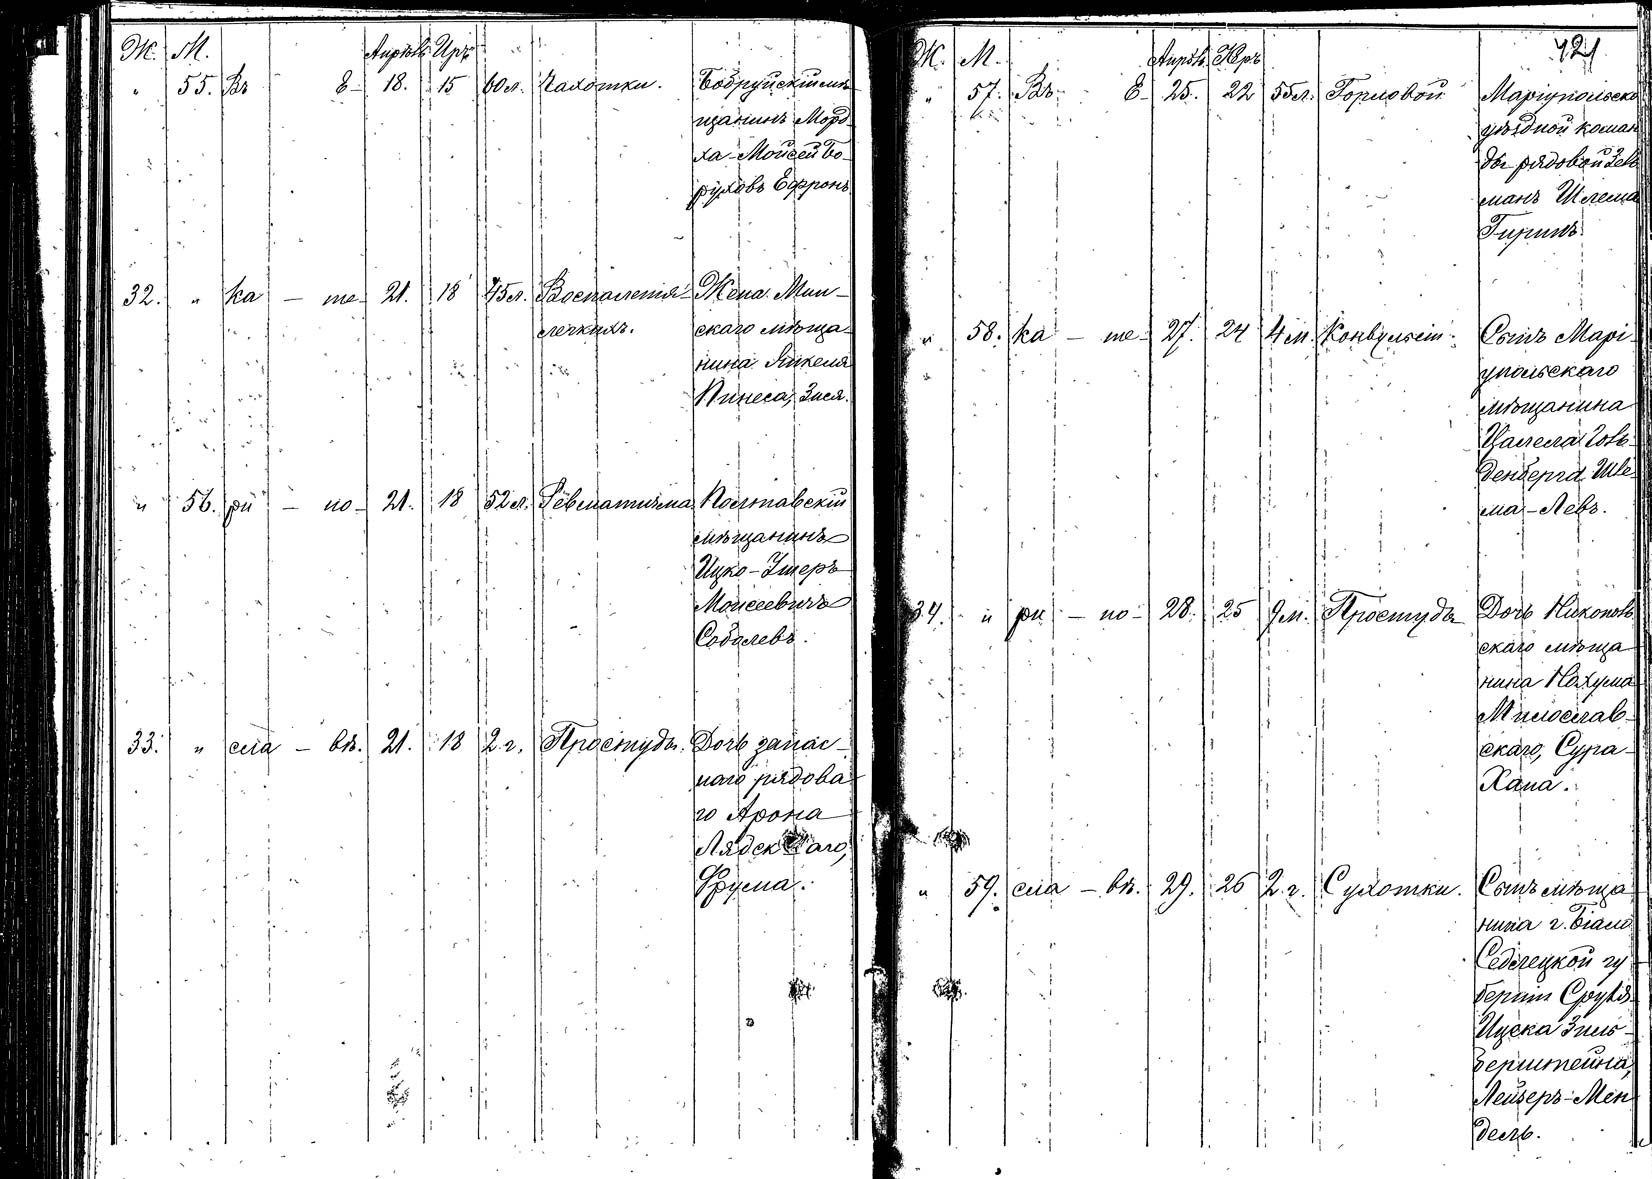 Ж. М. Апрѣль Иръ
" 55. Въ Е- 18. 15 60 л. Чахотки. Бобруйскій мѣ-
щанинъ Морд-
ха-Мойсей Бо-
руховъ Ефронъ
32. " ка - те- 21. 18 45 л. Воспаленія Жена Мин-
легкихъ. скаго мѣща-
нина Янкеля
Пинеса, Зися.
" 56. ри - по- 21. 18 52 л. Ревматизма Полтавскій
мѣщанинъ
Ицко-Ушеръ
Моисеевичъ
Соболевъ.
33. " сла - вѣ. 21. 18 2 г. Простуды. Дочь запас-
наго рядова-
го Арона
Лядскаго,
Фрума.
421
Ж. М. Апрѣль Иръ
" 57. Въ Е- 25. 22 55 л. Горловой Маріупольско
уѣздной коман
ды рядовой Зель
манъ Шлема
Гиринъ
" 58. ка - те- 27. 24 4 м. Конвульсіи. Сынъ Марі-
упольскаго
мѣщанина
Цалела Голь-
денберга Шле-
ма-Левъ.
34. " ри - по- 28. 25 9 м. Простуды Дочь Никополь
скаго мѣща
нина Нахума
Милослав-
скаго, Сура-
Хана.
" 59. сла - вѣ. 29. 26 2 г. Сухотки. Сынъ мѣща
нина г. Біало
Седлецкой гу
берніи Сруля-
Ицека Зиль-
берштейна,
Лейзеръ-Мен
дель.